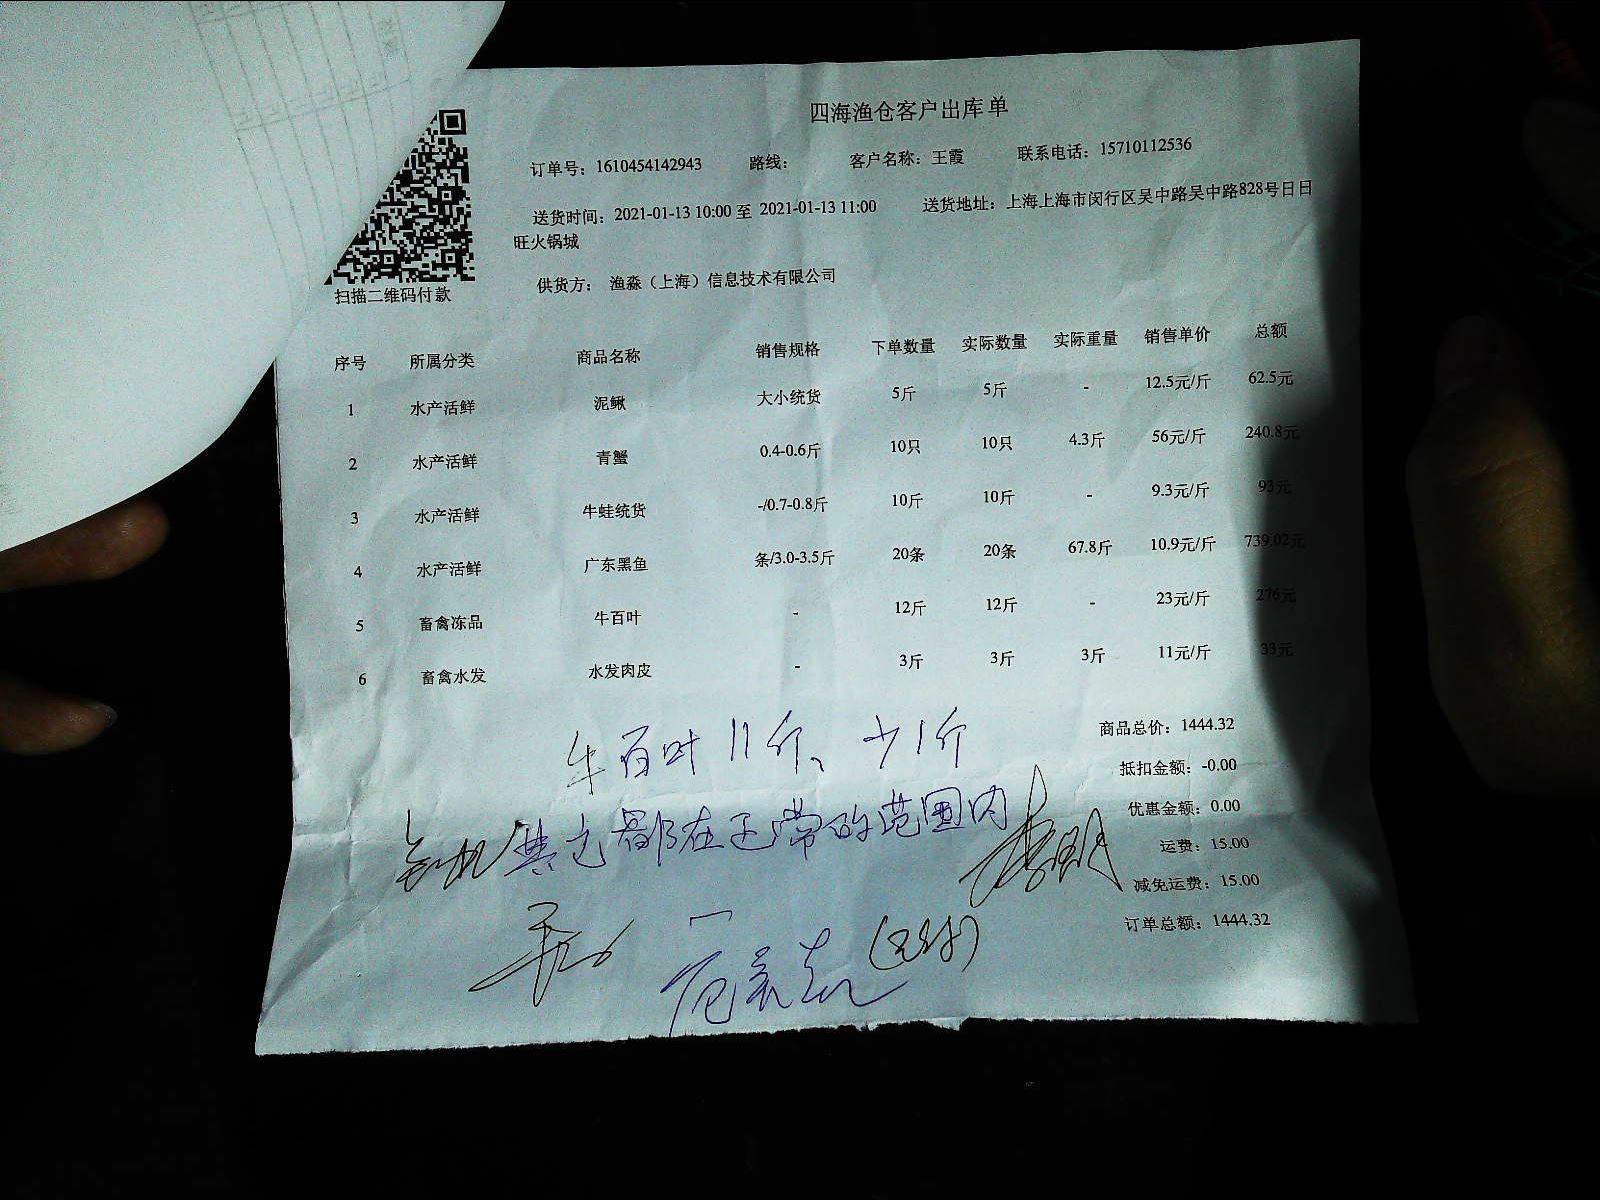 四海渔仓客户出库单
订单号：1610454142943 路线： 客户名称：王霞 联系电话：15710112536
送货时间：2021-01-13 10:00 至 2021-01-13 11:00 送货地址：上海上海市闵行区吴中路吴中路828号日日
旺火锅城
供货方： 渔淼（上海）信息技术有限公司
扫描二维码付款
序号 所属分类 商品名称 销售规格 下单数量 实际数量 实际重量 销售单价 总额
1 水产活鲜 泥鳅 大小统货 5斤 5斤 - 12.5元/斤 62.5元
2 水产活鲜 青蟹 0.4-0.6斤 10只 10只 4.3斤 56元/斤 240.8元
3 水产活鲜 牛蛙统货 -/0.7-0.8斤 10斤 10斤 - 9.3元/斤 93元
4 水产活鲜 广东黑鱼 条/3.0-3.5斤 20条 20条 67.8斤 10.9元/斤 739.02元
5 畜禽冻品 牛百叶 - 12斤 12斤 - 23元/斤 276元
6 畜禽水发 水发肉皮 - 3斤 3斤 3斤 11元/斤 33元
商品总价：1444.32
牛百叶11斤、少1斤
抵扣金额：-0.00
优惠金额：0.00
都在正常的范围内
运费：15.00
减免运费：15.00
订单总额：1444.32